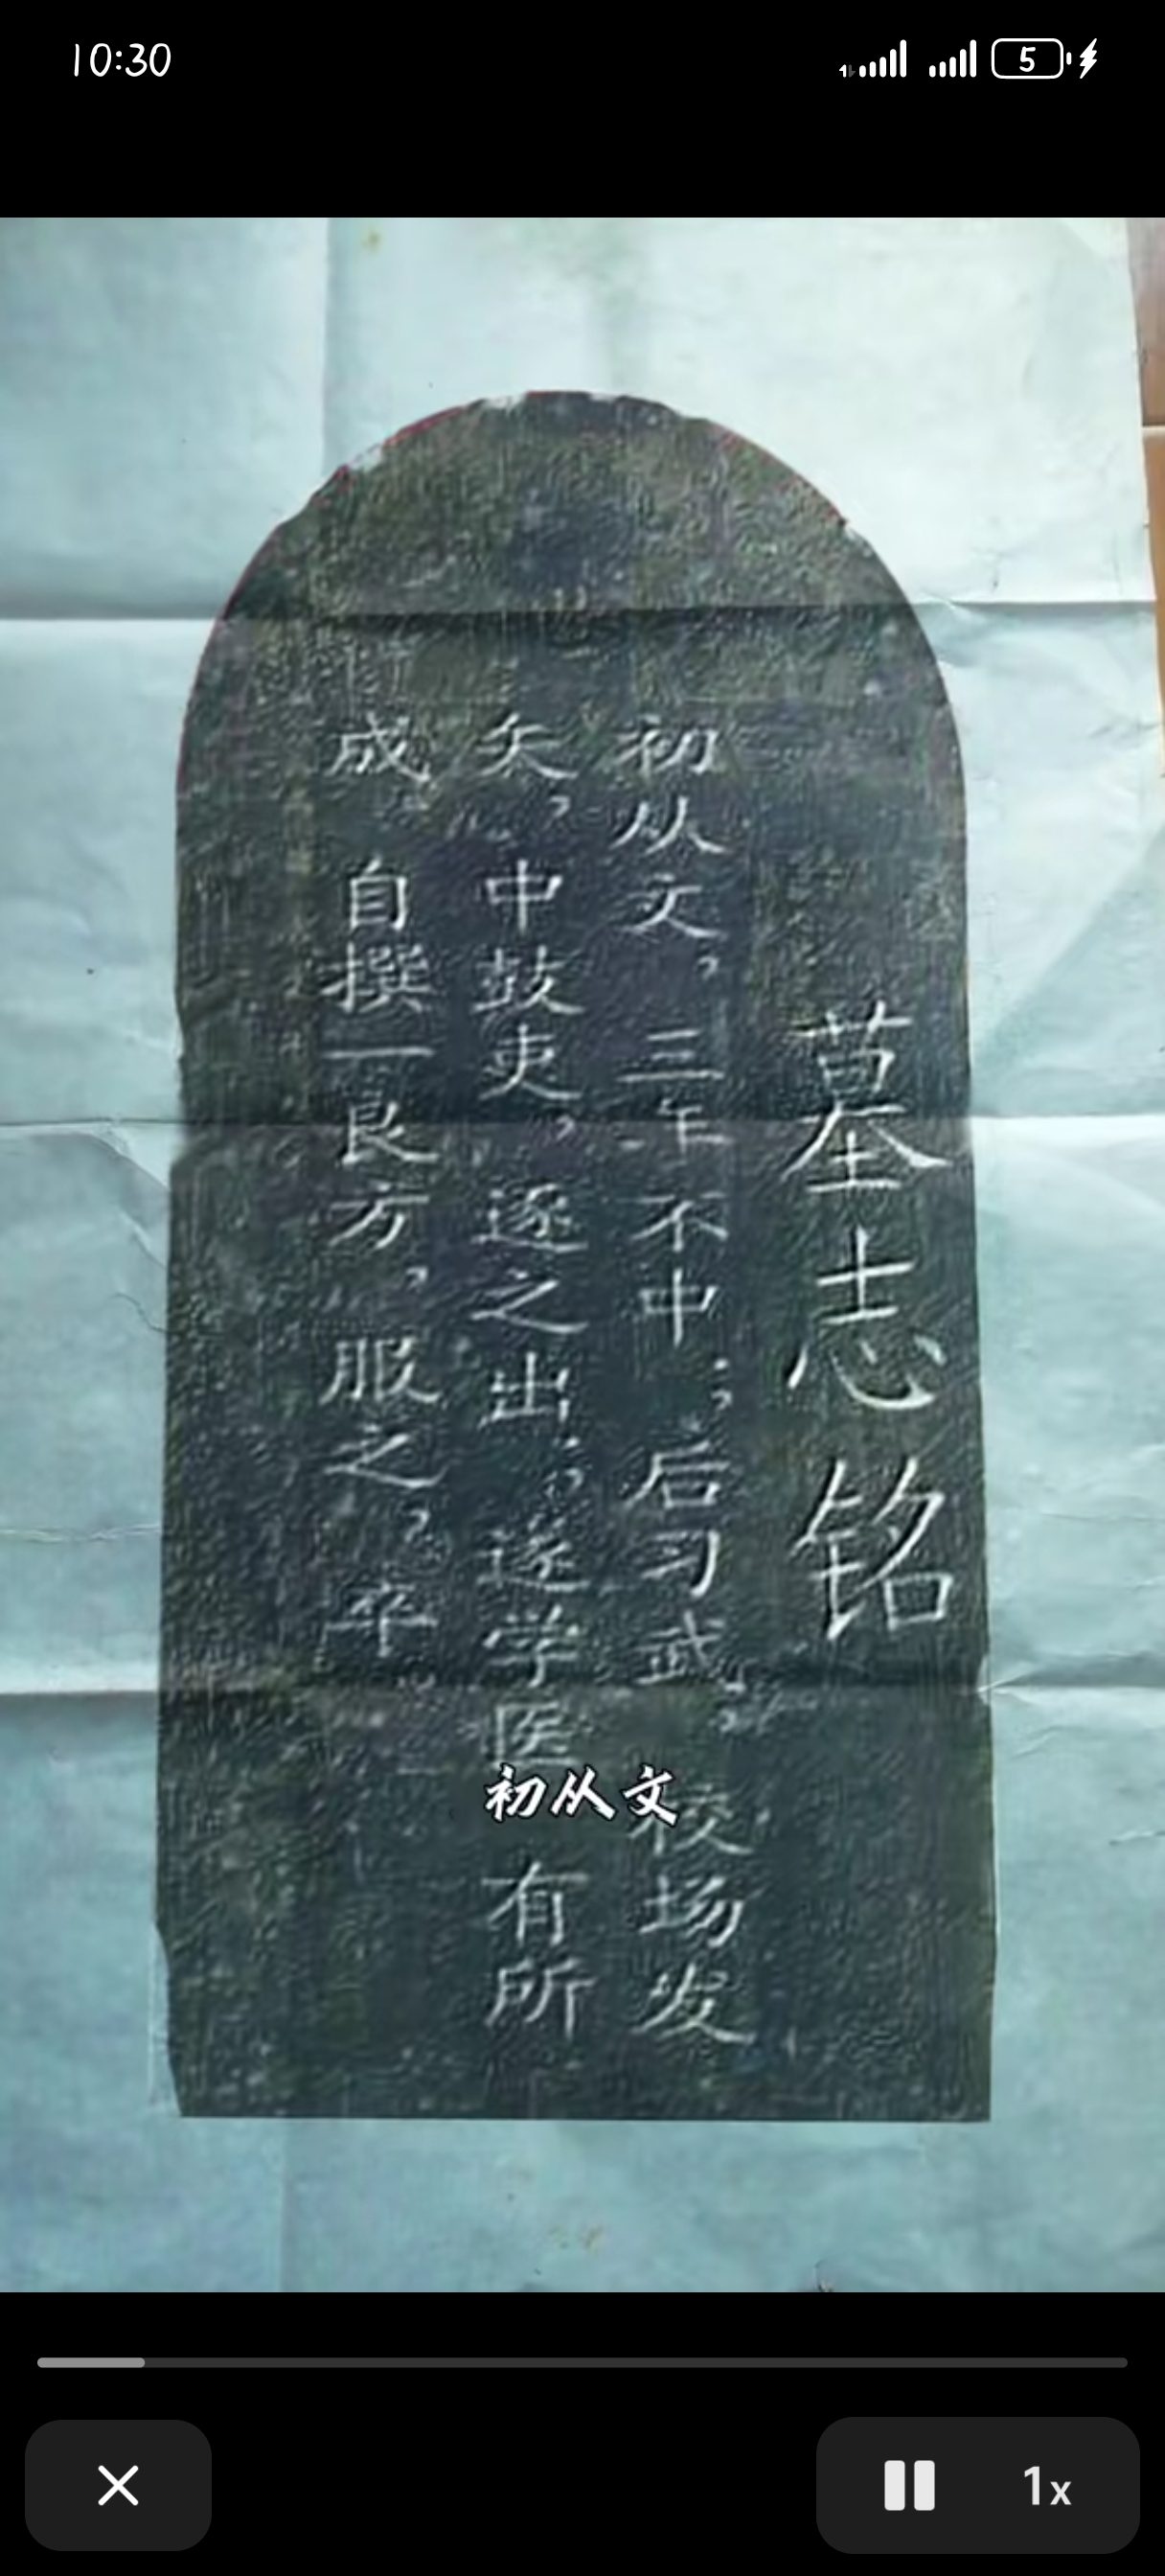 10:30
5
墓志铭
初从文，三年不中；后习武，校场发
矢，中鼓吏，逐之出；遂学医，有所
成。自撰一良方，服之，卒。
初从文
1x